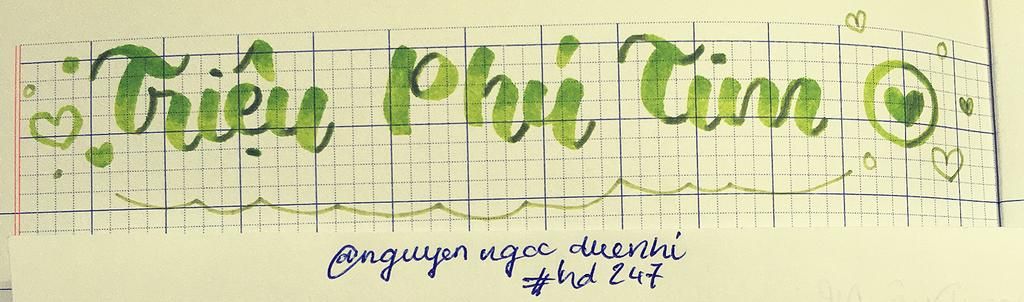 Triệu Phú Tim
@nguyen ngoc duenhi
#hd 247